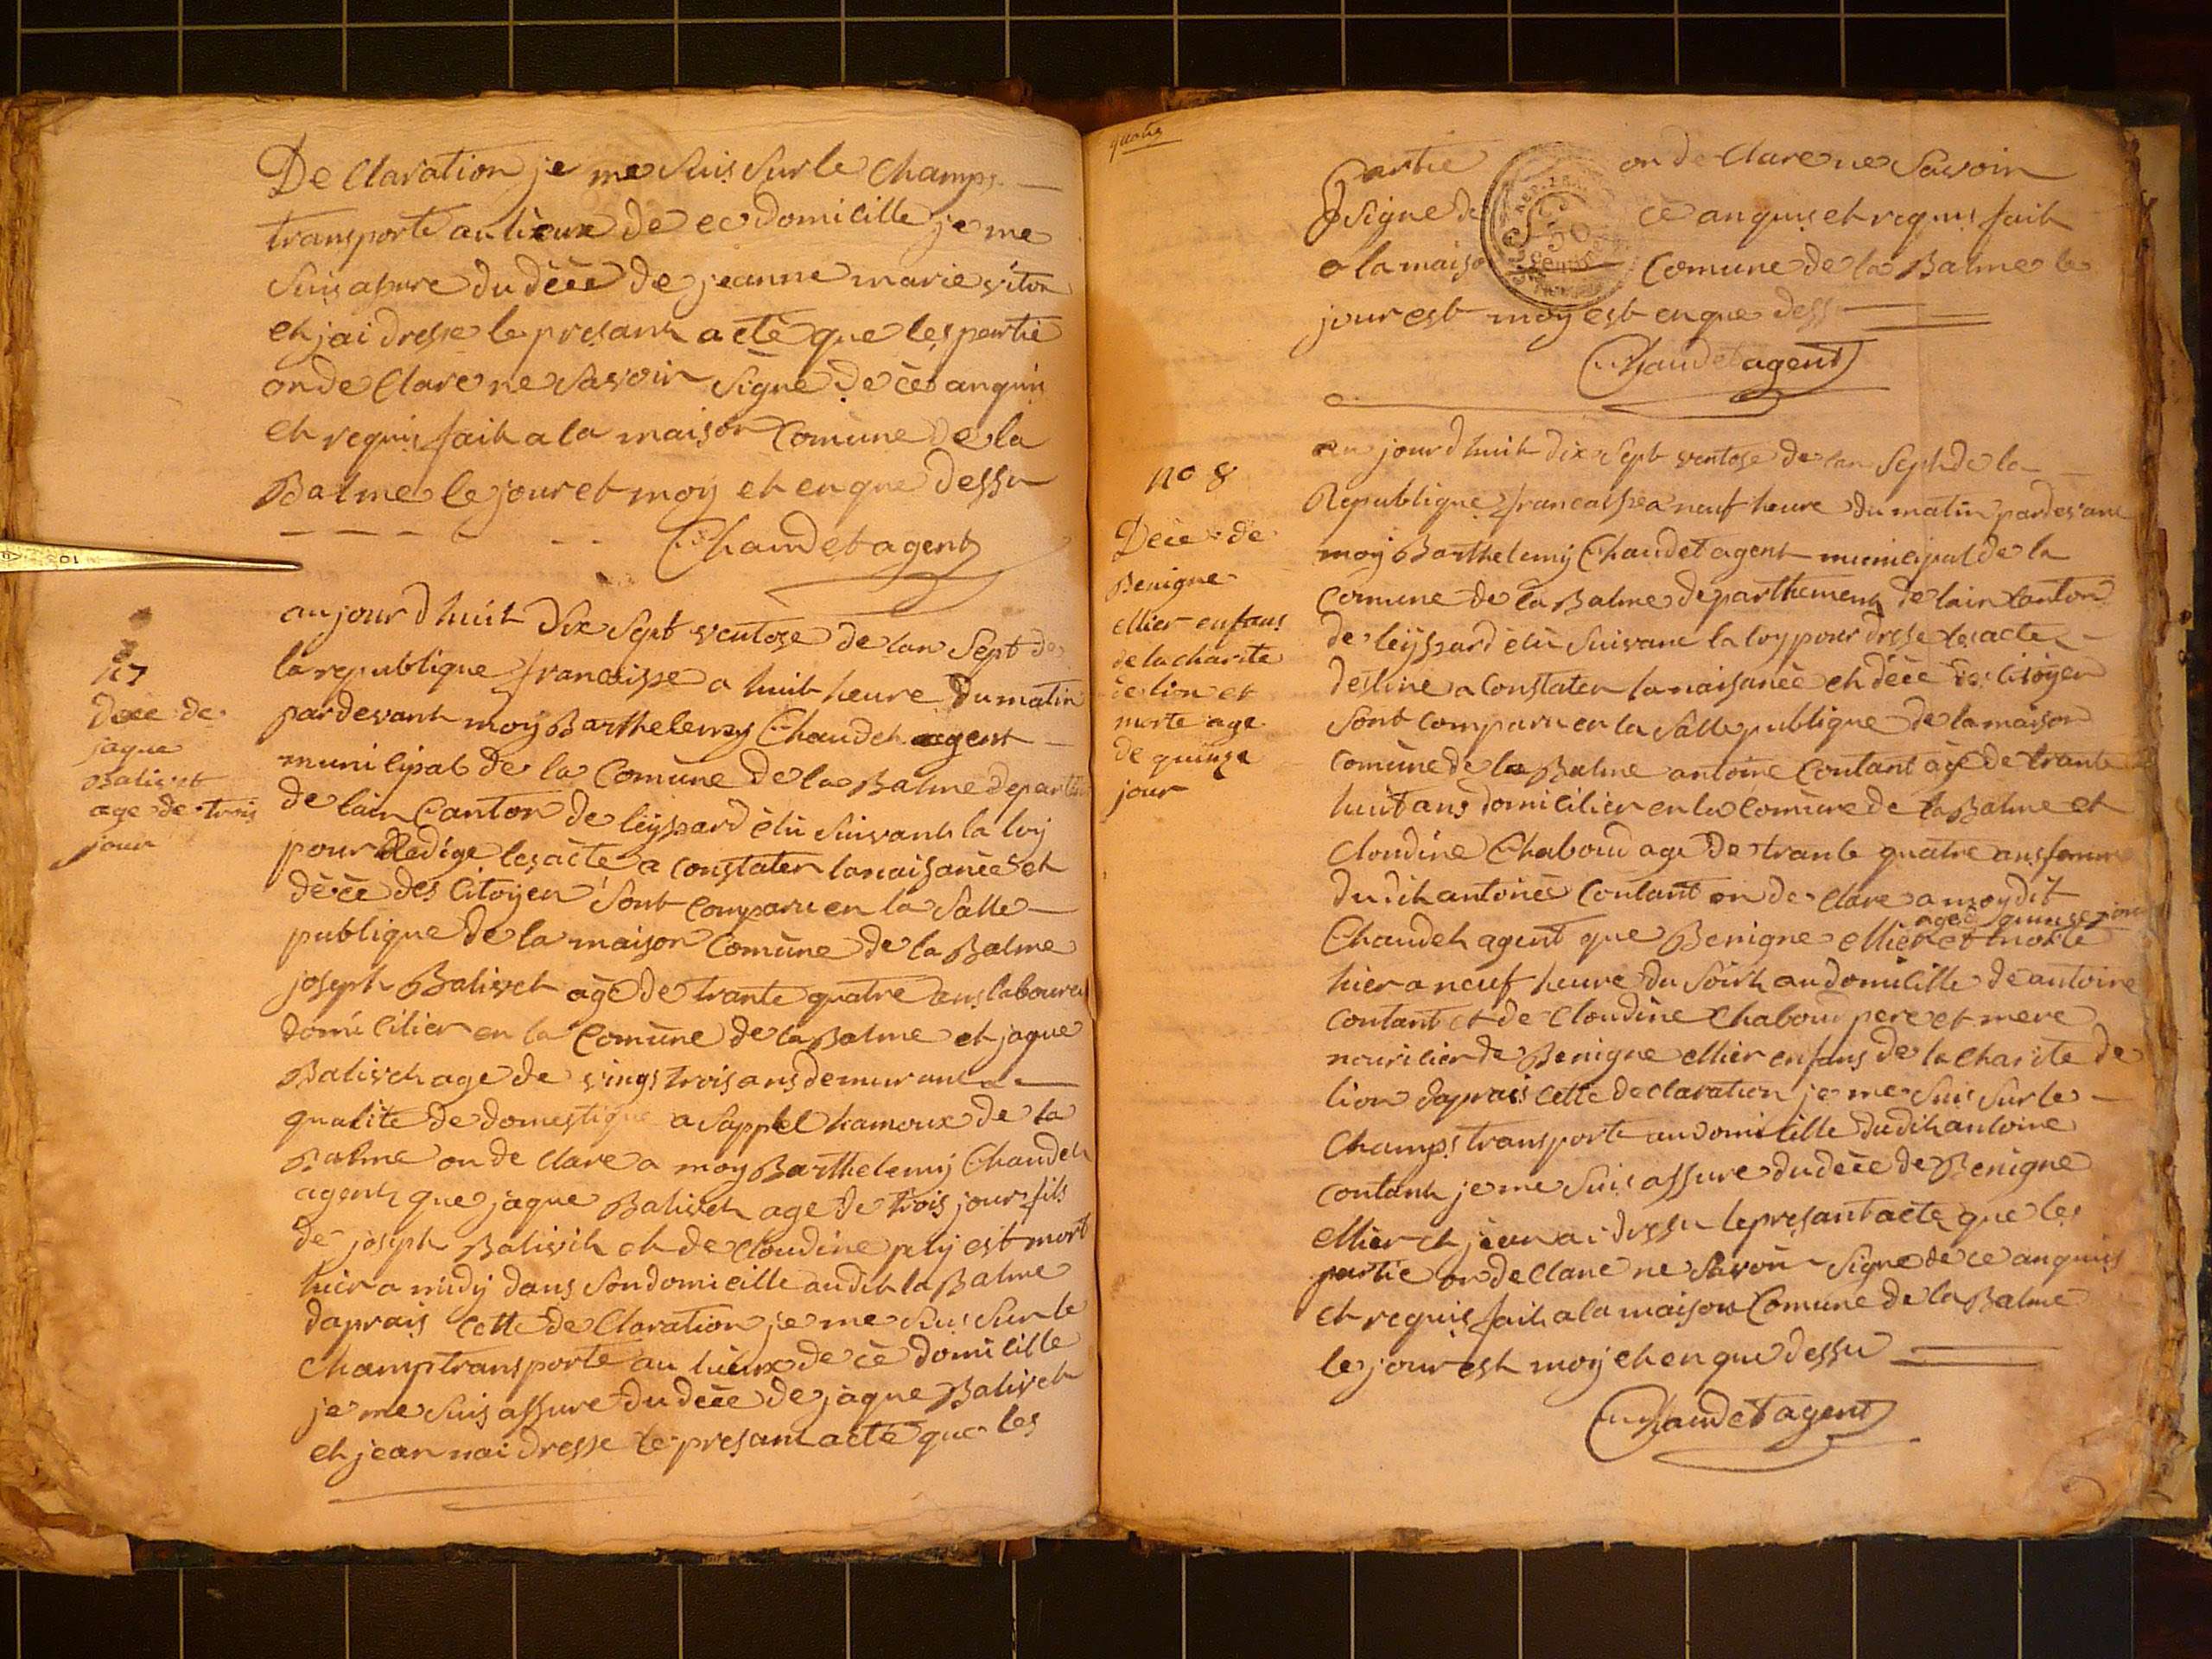 De Claration je me Suis Sur le Champs
transporte au lieux de ce domicille je me
Suis assure du dèce de jeanne marie viton
et jai dresse le presant acte que les partie
on de Clare ne Savoir Signe de ce anquis
et requis fait a la maison Comune de la
Balme le jour et moy et en que dessu
Chaudet agent
n7
Dece de
jaque
Balivet
age de trois
jour
aujourdhuit Dix Sept ventose de lan Sept de
la republique francaisse a huit heure du matin
pardevant moy Barthelemy Chaudet agent
municipal de la Comune de la Balme depart
de lain Canton de leyssard élu Suivant la loy
pour Redige les acte a Constater la naisance et
dèce des Citoyen Sont Comparu en la Salle
publique de la maison Comune de la Balme
joseph Balivet agé de trante quatre ans laboure
domicilier en la Comune de la Balme et jaque
Balivet age de vings trois ans demurant
qualite de domestique a Sappel hamoux de la
Balme on de Clare a moy Barthelemy Chaudet
agent que jaque Balivet age de trois jour fils
de joseph Balivet et de Cloudine pey est mort
hier a midy dans Son domicille audit la Balme
daprais Cette de Claration je me Suis Sur le
Champ transporte au lieux de ce domicille
je me Suis assure du dece de jaque Balivet
et jean nai dresse le presant acte que les
quatre
partie on de Clare ne Savoir
Signe de ce anquis et requis fait
a la maiso Comune de la Balme le
jour est moy est en que dess
Chaudet agent
no 8
Dece de
Benigne
ellier enfans
de la charite
de lion et
morte age
de quinze
jour
au jourdhuit dix Sept ventose de lan Sept de la
Republique francaisse a neuf heure du matin pardevant
moy Barthelemy Chaudet agent municipal de la
Comune de la Balme departhement de lain Canton
de leyssard élu Suivant la loy pour dresse les acte
destine a Constater la naisance et dèce des Citoyen
Sont Comparu en la Salle publique de la maison
Comune de la Balme antoine Contant agé de trante
huit ans domicilier en la Comune de la Balme et
Cloudine Chaboud age de trante quatre ans femme
dudit antoine Contant on de Clare a moy dit
Chaudet agent que Benigne ellier agee quinse jour et morte
hier a neuf heure du Soirt au domicille de antoine
Contant et de Cloudine Chaboud pere et mere
nouricier de Benigne ellier enfans de la Charite de
lion daprais Cette declaration je me Suis Sur le
Champs transporte au domicille dudit antoine
Contant je me Suis assure du dèce de Benigne
ellier et jean ai dressu le presant acte que les
partie on de Clare ne Savoir Signe de ce anquis
et requis fait a la maison Comune de la Balme
le jour est moy et en que dessu
Chaudet agent